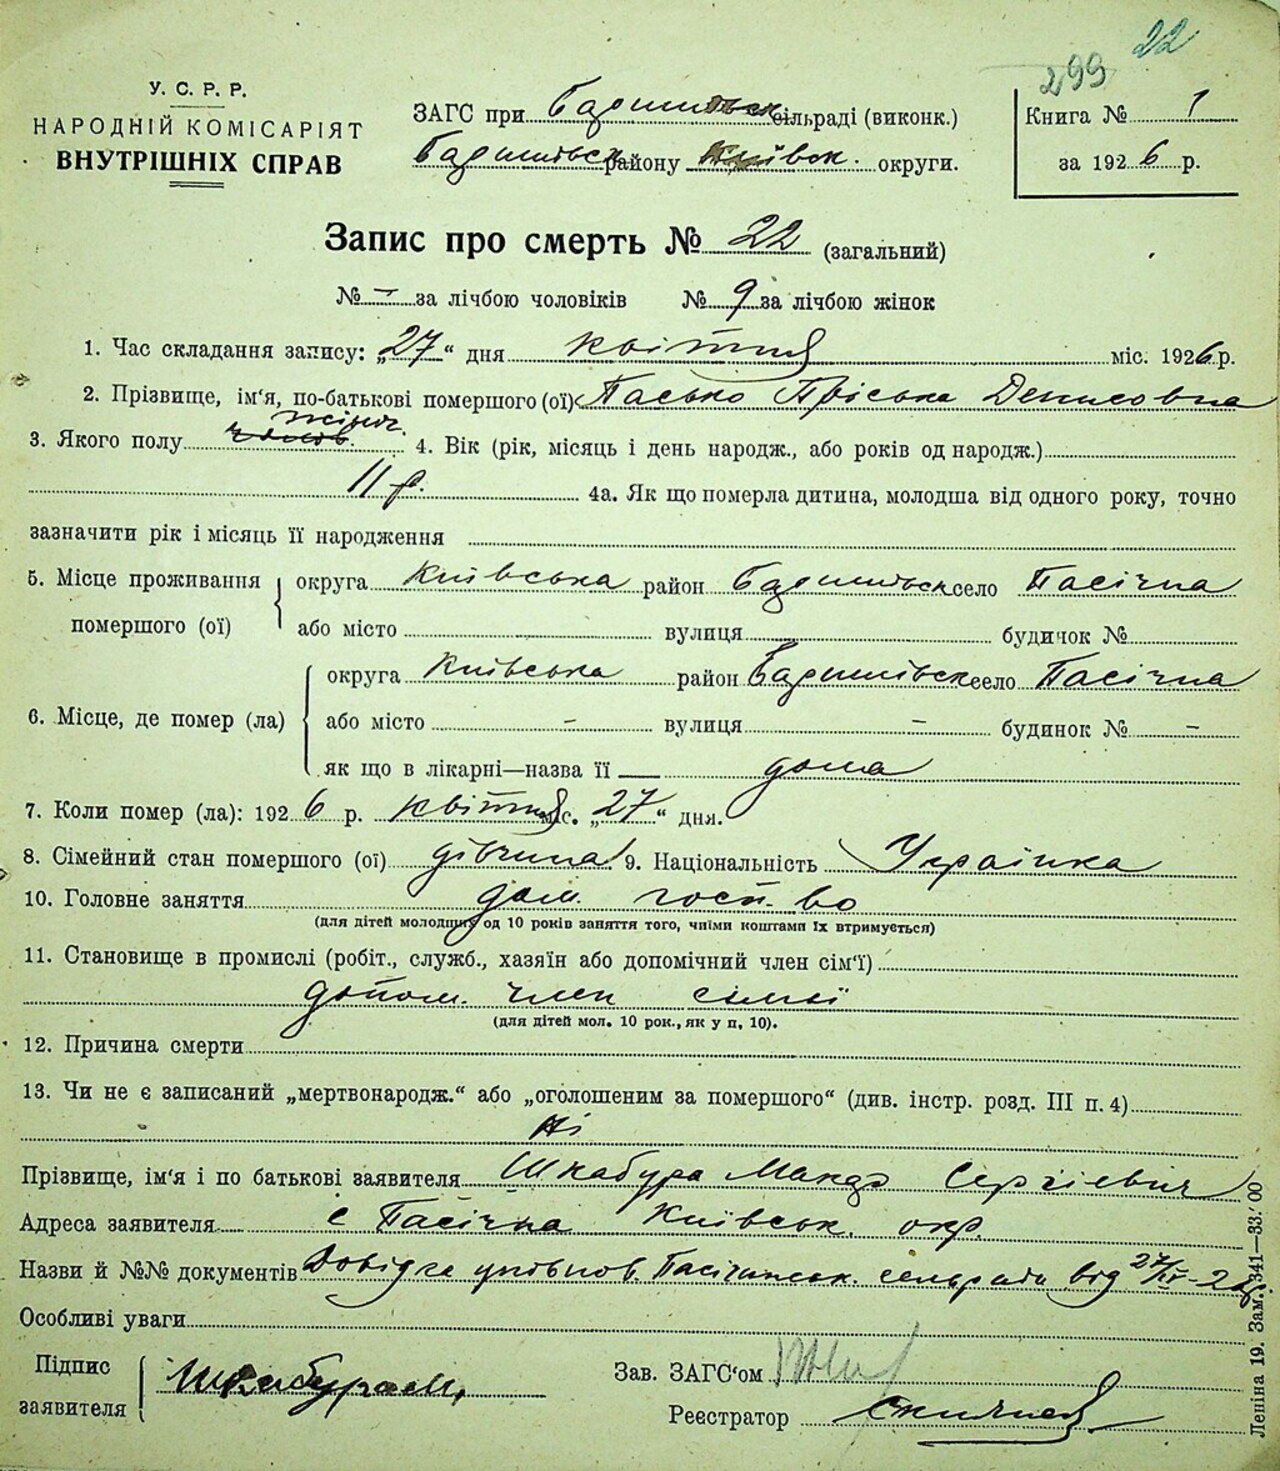 22
299
У. С. Р. Р.
НАРОДНІЙ КОМІСАРІЯТ
ВНУТРІШНІХ СПРАВ
ЗАГС при Бадишівськ сільраді (виконк.)
Бадишівськ району Київськ. округи.
Книга № 1
за 1926 р.
Запис про смерть № 22 (загальний)
№ – за лічбою чоловіків № 9 за лічбою жінок
1. Час складання запису: „27“ дня квітня міс. 1926 р.
2. Прізвище, ім'я, по-батькові помершого (ої) Пасько Пріська Денисовна
3. Якого полу жіноч. 4. Вік (рік, місяць і день народж., або років од народж.)
11 р. 4а. Як що померла дитина, молодша від одного року, точно
зазначити рік і місяць її народження
5. Місце проживання помершого (ої) округа Київська район Бадишівськ село Пасічна
або місто вулиця будинок №
6. Місце, де помер (ла) округа Київська район Бадишівськ село Пасічна
або місто – вулиця – будинок № –
як що в лікарні—назва її — дома
7. Коли помер (ла): 1926 р. квітня міс. „27“ дня.
8. Сімейний стан помершого (ої) дівчина 9. Національність Українка
10. Головне заняття дом. госп-во
(для дітей молодших од 10 років заняття того, чиїми коштами їх втримується)
11. Становище в промислі (робіт., служб., хазяїн або допомічний член сім'ї)
допом. член сімьї
(для дітей мол. 10 рок., як у п, 10).
12. Причина смерти
13. Чи не є записаний „мертвонародж.“ або „оголошеним за помершого“ (див. інстр. розд. III п. 4)
Ні
Прізвище, ім'я і по батькові заявителя Шкабура Сергієвич
Адреса заявителя с Пасічна Київськ. окр.
Назви й №№ документів Довідка уповнов. Пасічинськ. сельради від 27/IV-26р.
Особливі уваги
Підпис заявителя Шкабура М.
Зав. ЗАГС'ом
Реєстратор
Леніна 19. Зам. 341—33.'00